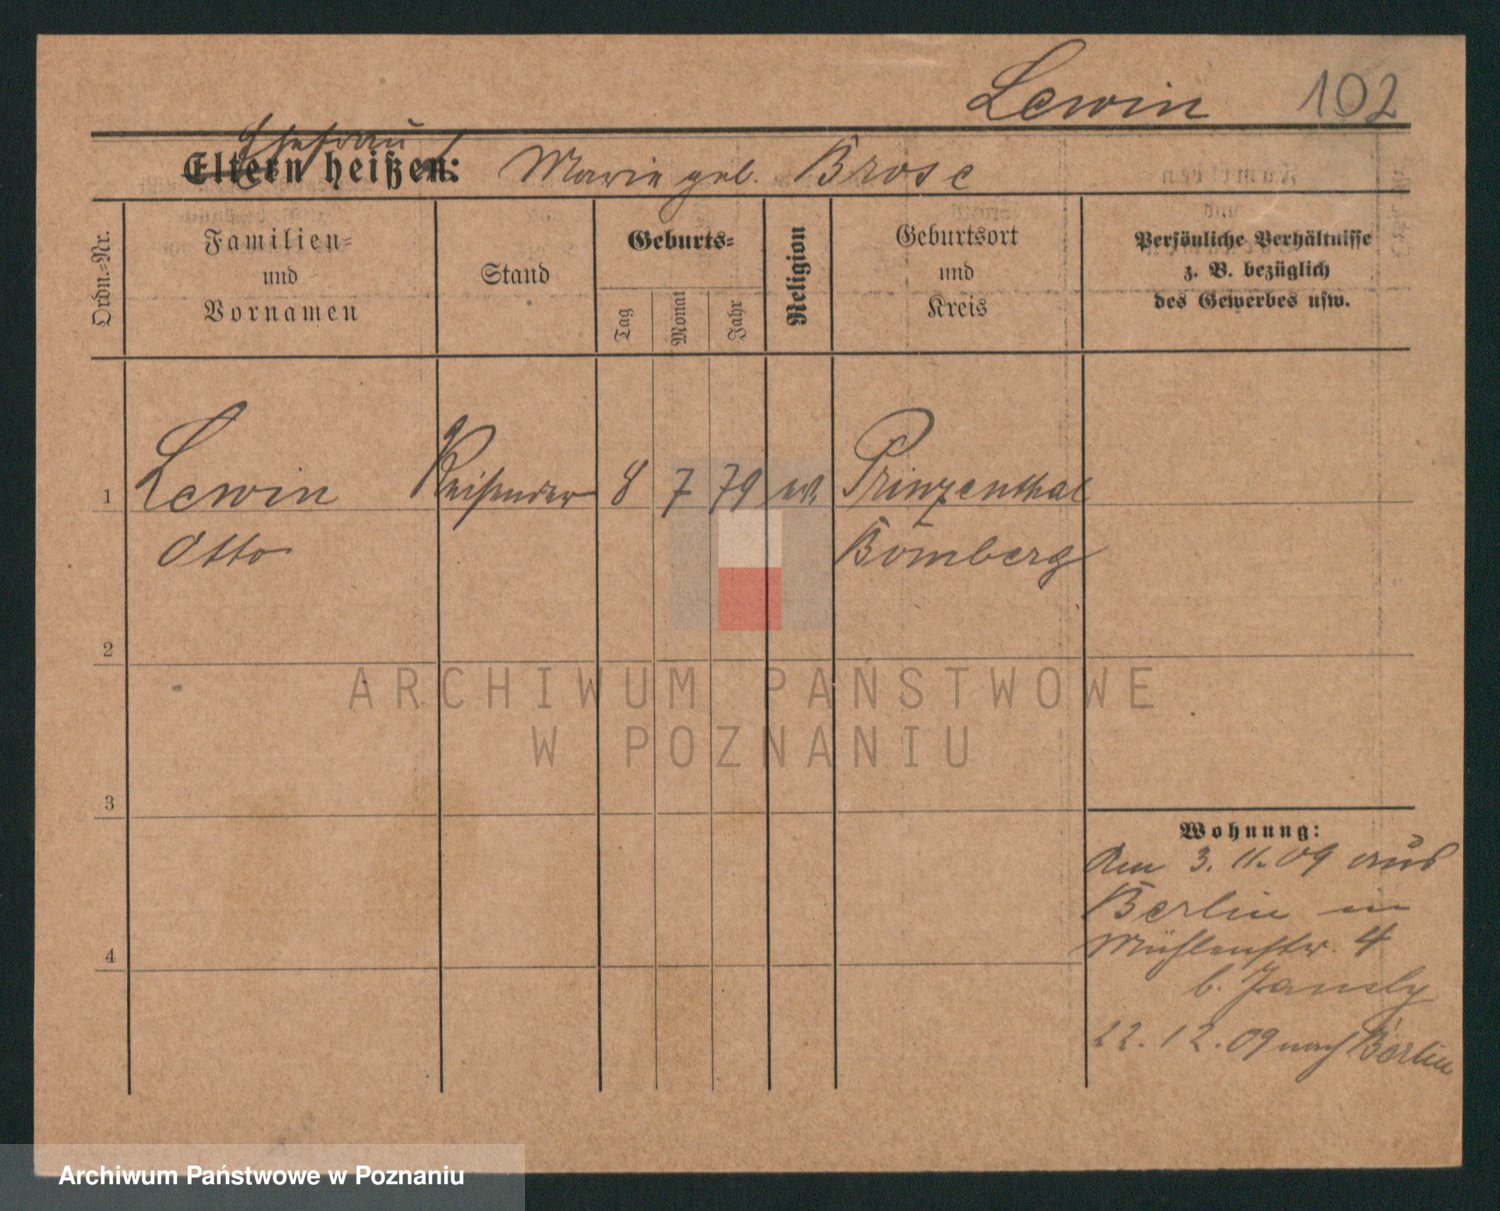 Lewin 102
Ehefrau
Eltern heißen: Marie geb. Brose
Ordn.=Nr.
Familien=
und
Vornamen
Stand
Geburts=
Tag
Monat
Jahr
Religion
Geburtsort
und
Kreis
Persönliche Verhältnisse
z. B. bezüglich
des Gewerbes usw.
1 Lewin Reisender 8 7 79 ev. Prinzenthal
Otto Bomberg
2
3
4
Wohnung:
Am 3. 11. 09 aus
Berlin in
Mühlenstr. 4
b.
22. 12. 09 nach Berlin
ARCHIWUM PAŃSTWOWE
W POZNANIU
Archiwum Państwowe w Poznaniu